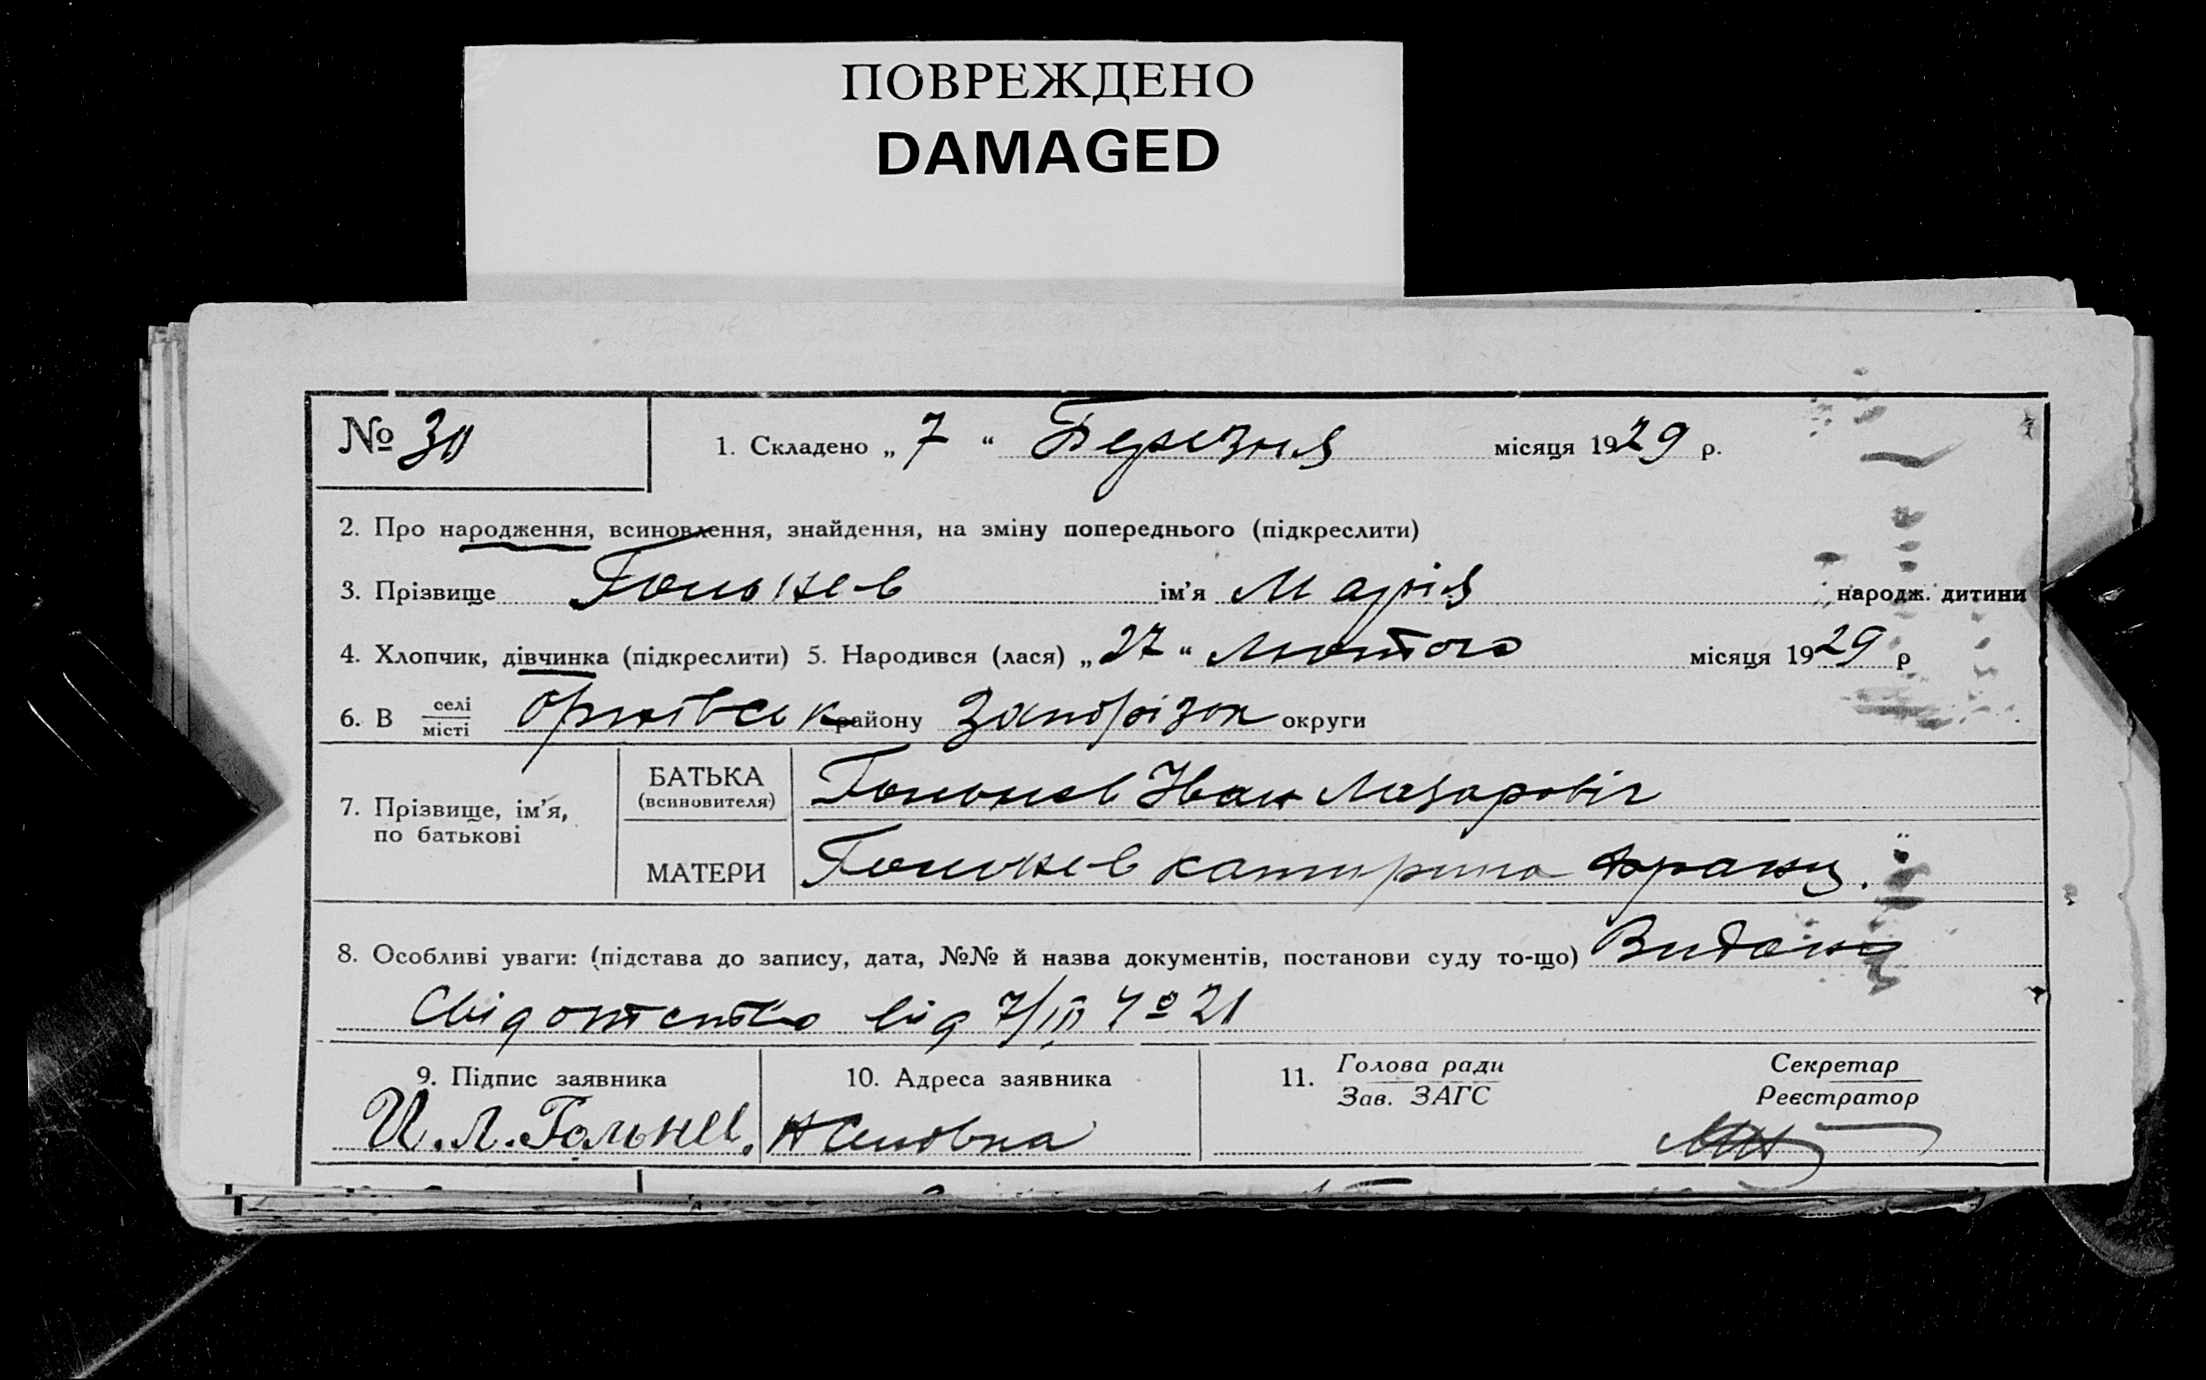 ПОВРЕЖДЕНО
DAMAGED
№ 30 1. Складено „ 7 “ Березня місяця 1929 р.
2. Про народження, всиновлення, знайдення, на зміну попереднього (підкреслити)
3. Прізвище ім'я Марія народж. дитини
4. Хлопчик, дівчинка (підкреслити) 5. Народився (лася) „ 27 “ Лютого місяця 1929 р
6. В селі місті району Запорізок округи
7. Прізвище, ім'я, по батькові
БАТЬКА (всиновителя) Иван Лазаровіч
МАТЕРИ Катирина Франц.
8. Особливі уваги: (підстава до запису, дата, №№ й назва документів, постанови суду то-що) Видано
від 7/III № 21
9. Підпис заявника 10. Адреса заявника 11. Голова ради Зав. ЗАГС Секретар Реєстратор
И. Л. Гольнев.